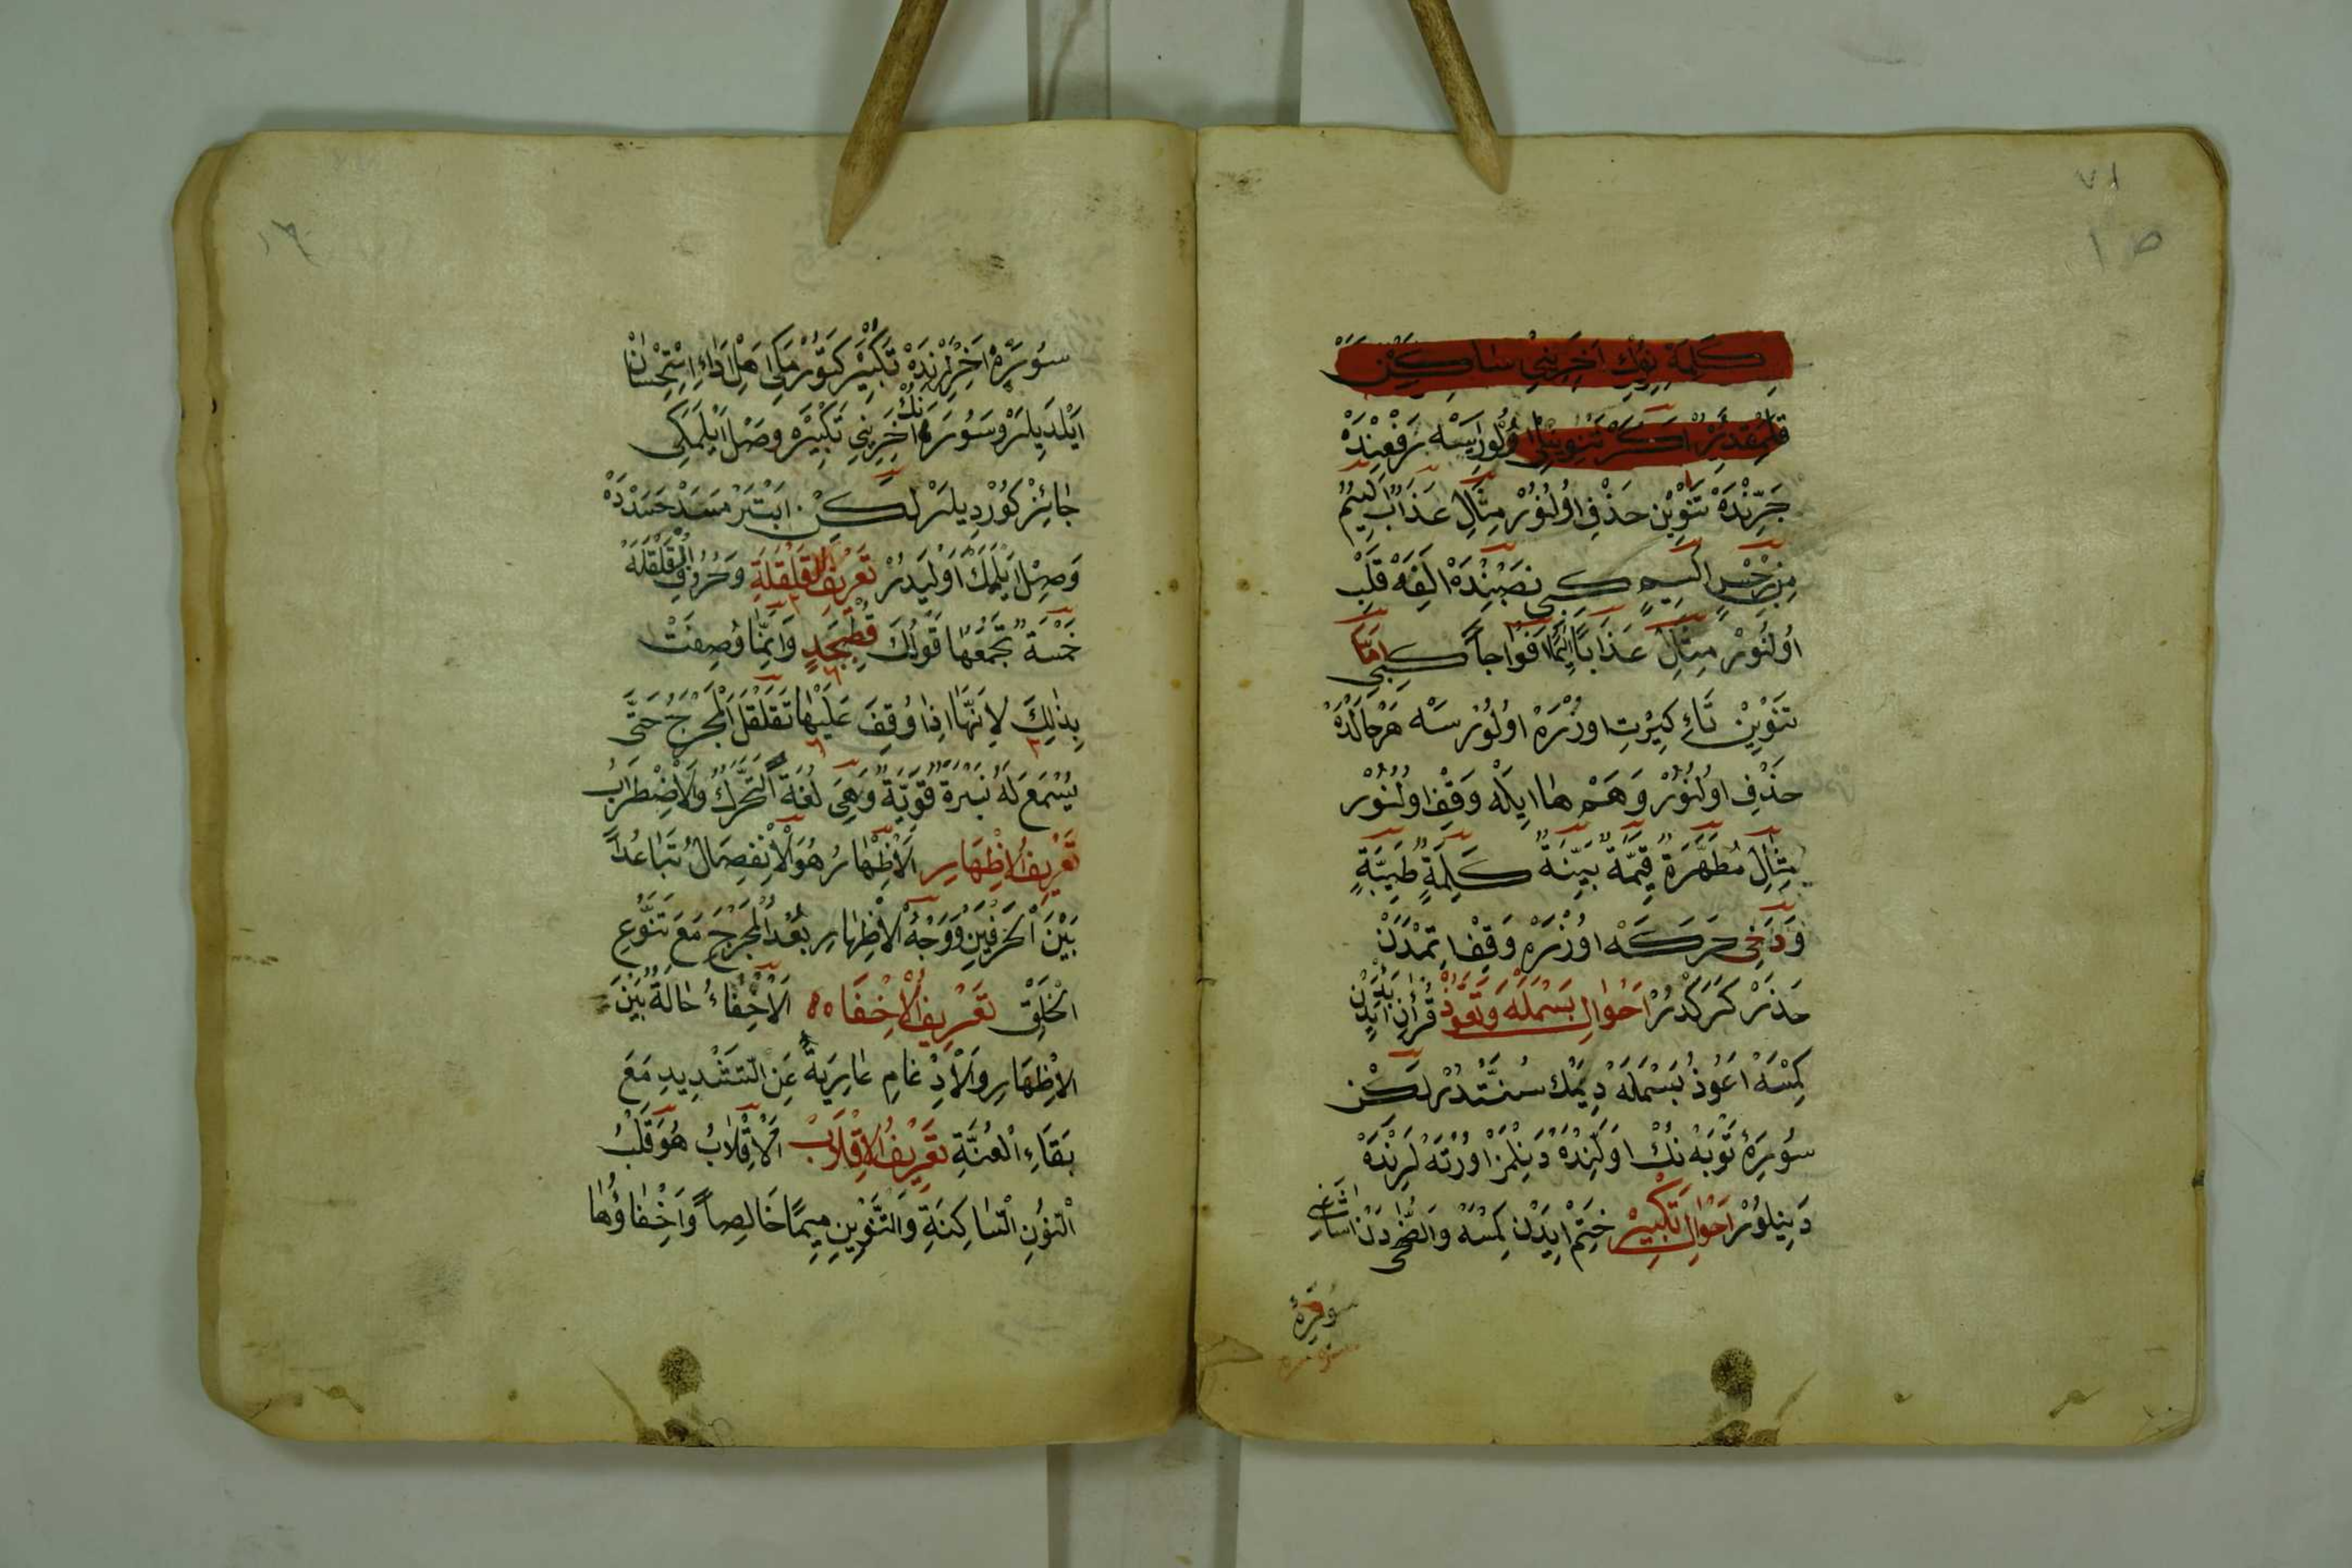 ٧١
كَلِمَةْ نِوُكْ اَخِرِينِيْ سٰاكِيْن
قِلْمَقْدُرْ اَكَرْ تَنْوِينْلِى اُولُورِسَهْ رَفْعِنْدَهْ
جَرِّنْدَهْ تَنْوِيْن حَذْفِ اُولُنُوْرْ مِثَالِ عَذَابٌ اَلِيمٌ
مِنْ رِجْزٍ اَلِيمٍ كبى نَصْبِنْدَهْ اَلِفَهْ قَلْبِ
اُولُنُوْرْ مِثَالِ عَذَابًا اَلِيمًا اَفْوَاجاً كبِى اَمَّا
تَنْوِيْنْ تَاءِ كِيْرْتِ اوزْرَهْ اوُلُوْرْسَهْ هَرْحَالْدَهْ
حَذْفِ اوُلُنُوْرْ وَهَمْ هَا ايِلَهْ وَقْفِ اوُلُنُوْر
مِثَالِ مُطَهَّرَةٌ قِيَّمَةٌ بَيِّنَةٌ كَلِمَةٍ طَيِّبَةٍ
وَدَخِى حَرَكَهْ اوُزْرَهْ وَقْفِ اِتْمَدَنْ
حَذَرْ كَرَكْدُرْ اَحْوَالِ بَسْمَلَهْ وَتَعَوُّذْ قُرْاٰنْ
كِمْسَهْ اَعُوذُ بَسْمَلَهْ دِيمَكْ سُنَّتْدُرْ لٰكِنْ
سُورَۀِ تَوْبَهْ نُكْ اَوَّلِنْدَهْ دَيِنْلَمَزْ اوُرْتَهْ لَرِنْدَهْ
دَيِنِلوُرْ اَحْوَالِ تَكْبِيْرْ خَتِمْ ايِدَنْ كِمْسَهْ وَالضُّحٰى دَنْ اَشَاغِى
سُورَهْ
سُورَهْ اَخِرْلَرِنْدَهْ تَكْبِيْرْ كَتوُرْمَكِى اَهْلِ اَدَاءِ اِسْتِحْسَانْ
اَيْلَدِيلَرْ وَسُورَهْ نُكْ اَخِرِينِى تَكْبِيْرَهْ وَصْل اَيْلَمَكِى
جَائِزْ كوُرْدِيلَرْ لٰكِنْ اَبْتَرْ مَسَدْ حَسَدْدَهْ
وَصِل اَيْلَمَكْ اَوْلَيدُرْ تَعْرِيفُ الْقَلْقَلَةِ وَحُرُوفُ الْقَلْقَلَةُ
خَمْسَةٌ تَجْمَعُهَا قَوْلُكَ قُطْبُجَدٍ وَاِنَّمَا وُصِفَتْ
بِذٰلِكَ لِاَنَّهَا اِذَا وُقِفَ عَلَيْهَا تَقَلْقَلَ الْمَخْرَجُ حَتَّى
يُسْمَعَ لَهُ نَبْرَةٌ قَوِيَّةٌ وَهِىَ لُغَةً اَلتَّحَرُّكُ وَالْاِضْطِرَابُ
تَعْرِيفُ الْاِظْهَارِ اَلْاِظْهَارُ هُوَ الْاِنْفِصَالُ تَبَاعُداً
بَيْنَ الْحَرْفَيْنِ وَوَجْهُ الْاِظْهَارِ بُعْدُ الْمَخْرَجِ مَعَ تَنَوُّعِ
الْحَلْقِ تَعْرِيفُ الْاِخْفَا اَلْاِخْفَاءُ حَالَةٌ بَيْنَ
الْاِظْهَارِ وَالْاِدْغَامِ عَارِيَةٌ عَنِ التَّشْدِيدِ مَعَ
بَقَاءِ الْغُنَّةِ تَعْرِيفُ الْاِقْلَابْ اَلْاِقْلَابُ هُوَ قَلْبُ
النُّونِ السَّاكِنَةِ وَالتَّنْوِينِ مِيمًا خَالِصاً وَاِخْفَاؤُهَا